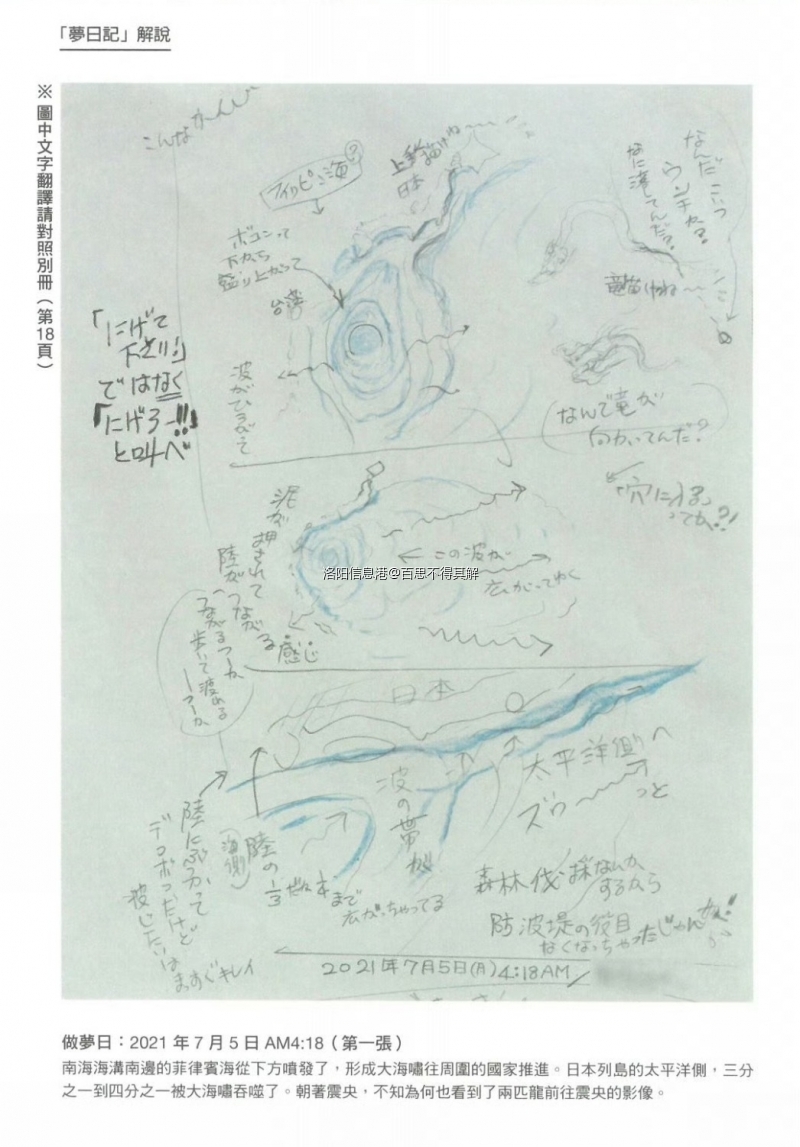 「夢日記」解說
※圖中文字翻譯請對照別冊（第18頁）
こんなかんじ
フィリピン海?
上手く描けね〜
日本
ボコンって
下から
盛り上がって
台湾
波がひろがって
なんだこいつ
ウンチか?
なに落してんだ?
竜描けね〜
「にげて
下さい!」
ではなく
「にげろー!!」
と叫べ
なんで竜が
向かってんだ?
「穴に入る」
ってか?!
泥が押されて
陸がつながる感じ
つながるつーか
歩いて渡れる
つーか
この波が
広がってゆく
洛阳信息港@百思不得其解
日本
太平洋側へ
ズゥ〜っと
波の帯が
陸にぶつかって
デコボコだけど
波じたいは
まっすぐキレイ
陸の
(海側)
1/3
まで
広がっちゃってる
森林伐採なんか
するから
防波堤の役目
なくなっちゃったじゃん
2021年7月5日(月)4:18AM
做夢日：2021 年 7 月 5 日 AM4:18（第一張）
南海海溝南邊的菲律賓海從下方噴發了，形成大海嘯往周圍的國家推進。日本列島的太平洋側，三分
之一到四分之一被大海嘯吞噬了。朝著震央，不知為何也看到了兩匹龍前往震央的影像。